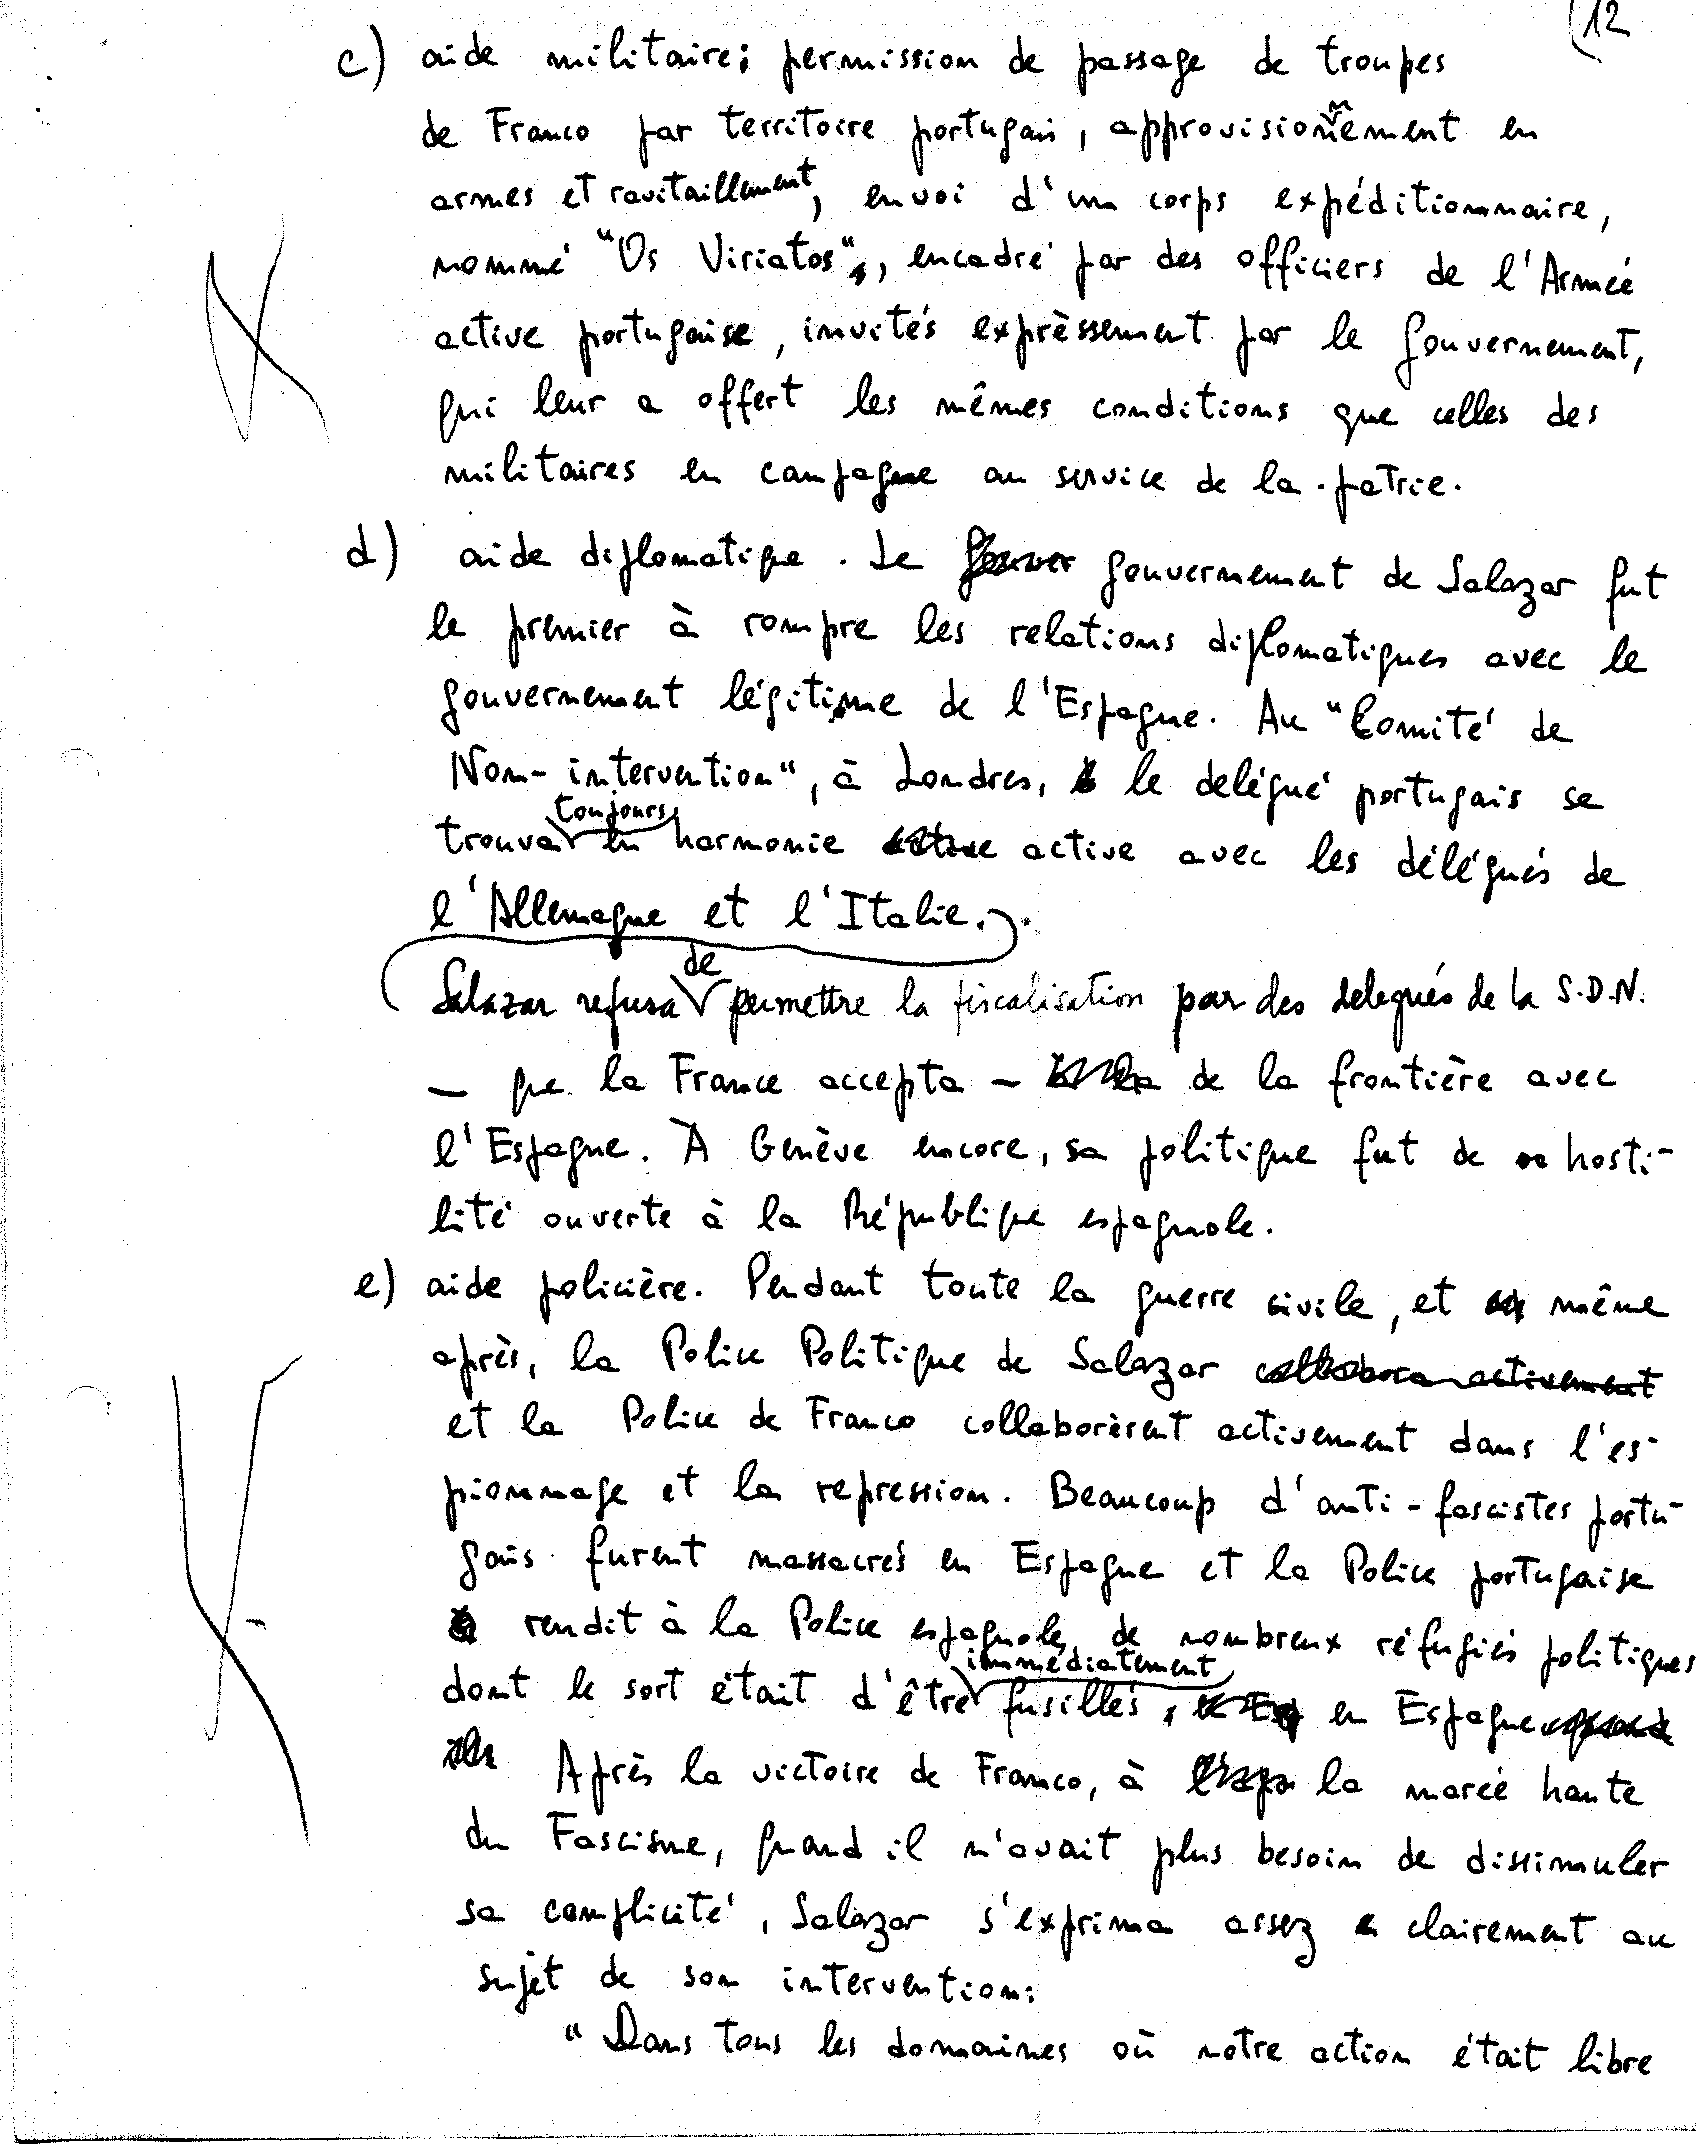 12
c) aide militaire; permission de passage de troupes
de Franco par territoire portugais, approvisionnement en
armes et ravitaillement, envoi d'un corps expéditionnaire,
nommé "Os Viriatos", encadré par des officiers de l'Armée
active portugaise, invités exprèssement par le gouvernement,
qui leur a offert les mêmes conditions que celles des
militaires en campagne au service de la patrie.
d) aide diplomatique. Le gouvernement de Salazar fut
le premier à rompre les relations diplomatiques avec le
gouvernement légitime de l'Espagne. Au "Comité de
Non-intervention", à Londres, le delégué portugais se
trouva toujours en harmonie active avec les délégués de
l'Allemagne et l'Italie.
Salazar refusa de permettre la fiscalisation par des delegués de la S.D.N.
– que la France accepta – de la frontière avec
l'Espagne. À Genève encore, sa politique fut de hosti-
lité ouverte à la République espagnole.
e) aide policière. Pendant toute la guerre civile, et même
après, la Police Politique de Salazar
et la Police de Franco collaborèrent activement dans l'es-
pionnage et la repression. Beaucoup d'anti-fascistes portu-
gais furent massacrés en Espagne et la Police portugaise
rendit à la Police espagnole, de nombreux réfugiés politiques
dont le sort était d'être immédiatement fusillés, en Espagne
Après la victoire de Franco, à la marée haute
du Fascisme, quand il n'avait plus besoin de dissimuler
sa complicité, Salazar s'exprima assez clairement au
sujet de son intervention:
"Dans tous les domaines où notre action était libre